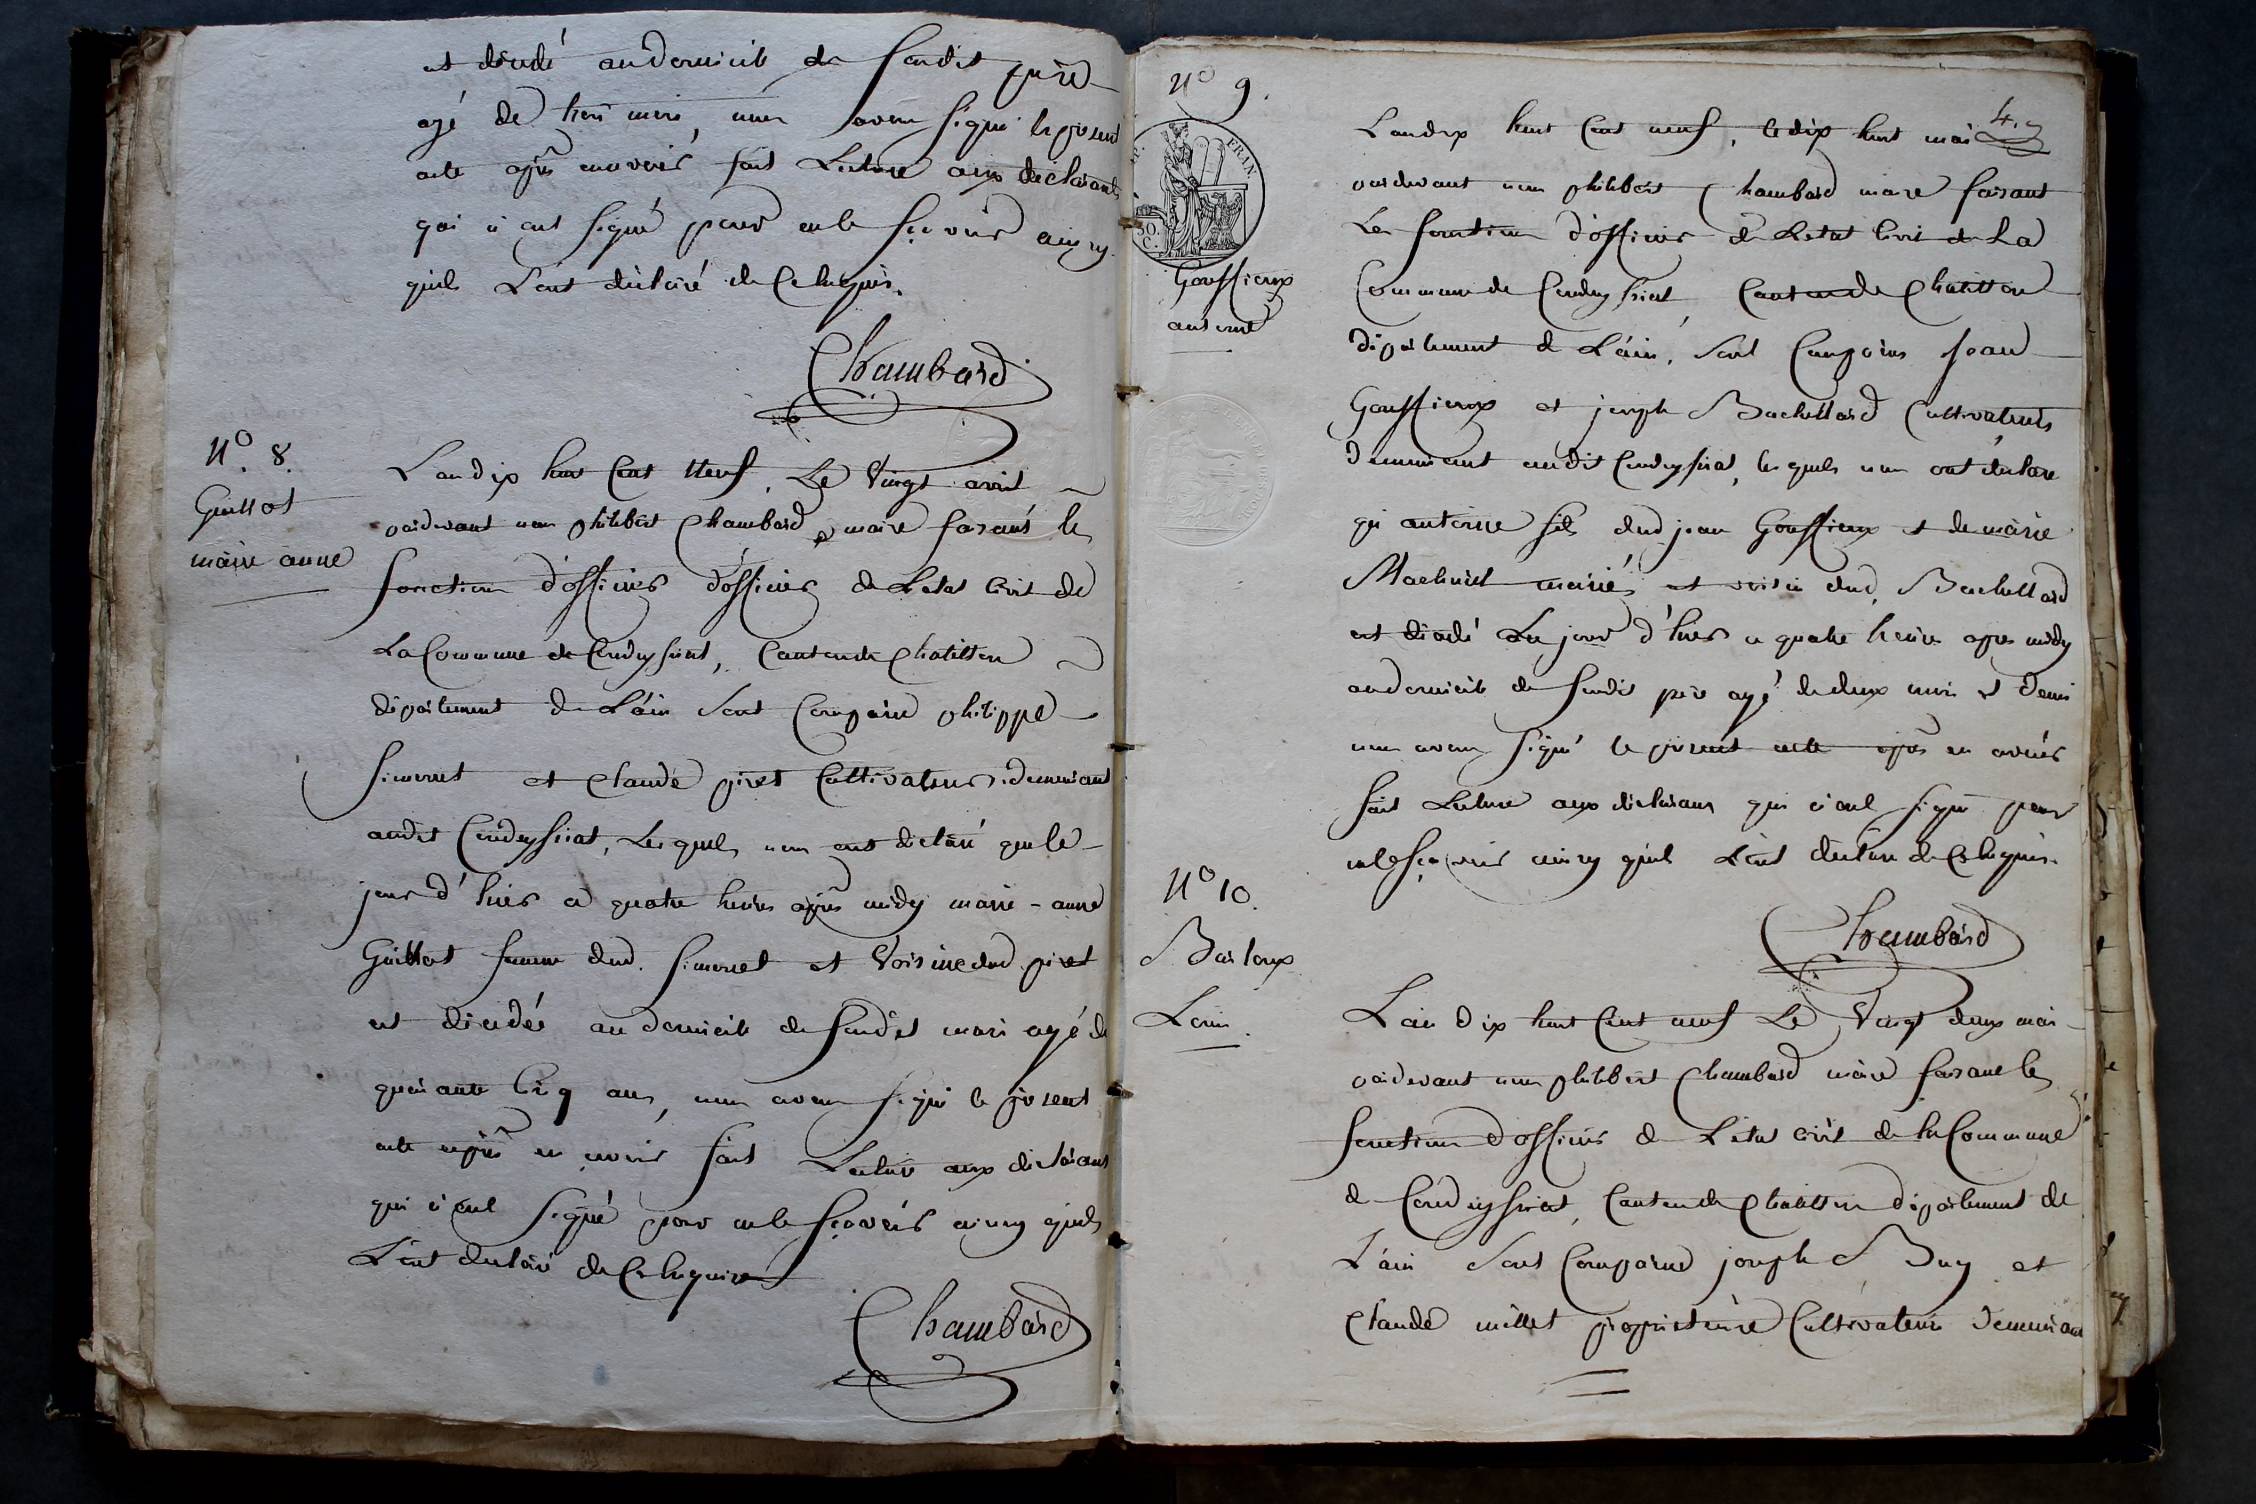 est décédé au domicile de sondit père
agé de trois mois, nous avons signé le présent
acte après en avoir fait Lecture aux déclarants
qui n'ont signé pour ne le sçavoir ainsy
quils L'ont déclaré de Ce Requis.
Chambard
N° 8.
Guillot
marie anne
L'an dix huit Cent Neuf, Le Vingt avril
pardevant nous philibert Chambard maire faisant les
fonctions d'officier d'officier de Letat Civil de
La Commune de Condeyssiat, Canton de Chatillon
département de L'ain Sont Comparu philippe
Simonet et Claude pivet Cultivateurs demeurant
audit Condeyssiat, Lesquels nous ont déclaré que le
jour d'hier a quatre heures après midy marie-anne
Guillot femme dud. Simonet et Voisine dud. pivet
est décédée au domicile de sondit mari agé de
quarante Cinq ans, nous avons signé le présent
acte après en avoir fait Lecture aux déclarants
qui n'ont signé pour ne le sçavoir ainsy quils
L'ont déclaré de Ce Requis
Chambard
N° 9.
FRIN
30.
C.
Gouffieux
antoine
L'an dix huit Cent neuf, le dix huit mai
pardevant nous philibert Chambard maire faisant
Les fonctions d'officier de Letat Civil de La
Commune de Condeyssiat Canton de Chatillon
département de L'ain, Sont Comparus Jean
Gouffieux et joseph Buchillard Cultivateurs
demeurant audit Condeyssiat, lesquels nous ont déclaré
que antoine fils dud jean Gouffieux et de marie
mariés et voisin dud. Buchillard
est décédé Le jour d'hier a quatre heures après midy
au domicile de sondit père agé de deux mois et demi
nous avons signé le présent acte après en avoir
fait Lecture aux déclarans qui n'ont signé pour
ne le sçavoir ainsy quils L'ont déclaré de Ce Requis.
Chambard
N° 10.
L'an dix huit Cent neuf Le Vingt deux mai
pardevant nous philibert Chambard maire faisant les
fonctions d'officier de L'etat civil de la Commune
de Condeyssiat, Canton de Chatillon département de
L'ain Sont Comparu joseph Buy et
Claude millet propriétaire Cultivateurs demeurant